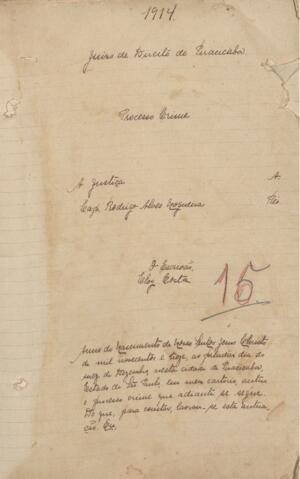 1914
Juizo de Direito de Piracicaba
Processo Crime
A Justiça A.
Cap. Rodrigo Alves Nogueira Réo
O Escrivão,
Eloy Costa
15
Anno do Nascimento de Nosso Senhor Jesus Christo
de mil novecentos e, aos dia do
mez de Dezembro nesta cidade de Piracicaba,
Estado de São Paulo, em meu cartorio, autúo
o processo crime que adiante se segue.
Do que, para constar, lavrei esta autua-
ção. Eu,